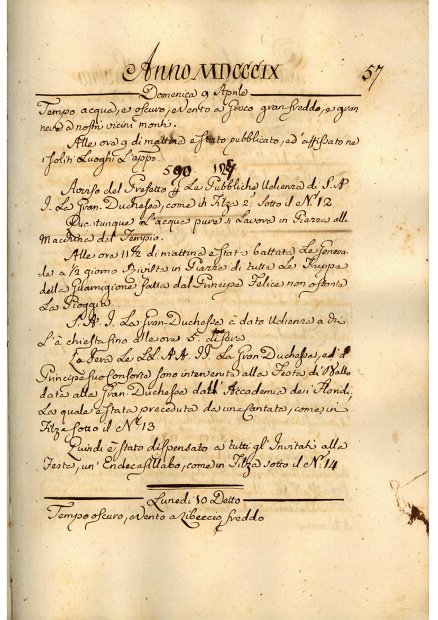 Anno MDCCCIX
57
Domenica 9 Aprile
Tempo acqua, e oscuro, e Vento a Greco gran freddo, e gran
neve a nostri vicini monti.
Alle ore 9 di mattina è stato pubblicato, ed affissato ne
soliti Luoghi L'appo.
590
Avviso del Prefetto # Le Pubbliche Udienze di S. A
I. La Gran Duchessa, come in Filza 2. sotto il N.º 12
L'acqua pure Lavora in Piazza all
Macchina del Tempio.
Alle ore 11 1/2 di mattina è stata battata La Genera
le a 1/2 giorno Rivista in Piazza di tutta Le Truppa
della Guarnigione fatta dal Principe Felice non ostante
La Pioggia
S. A. I. La Gran Duchessa à dato Udienza a chi
L'à chiesta fino alle ore 5. di sera
La Sera Le LL. AA. II. La Gran Duchessa, ed il
Principe suo Consorte sono intervenuti alla Festa di Ballo
data alla Gran Duchessa dall' Accademia dei Floridi,
La quale è stata preceduta da una Cantata, come in
Filza sotto il N.º 13
Quindi è stato dispensato a tutti gl' Invitati alla
Festa, un' Endecasillabo, come in Filza sotto il N.º 14
Lunedì 10 Detto
Tempo oscuro, e Vento a Libeccio freddo